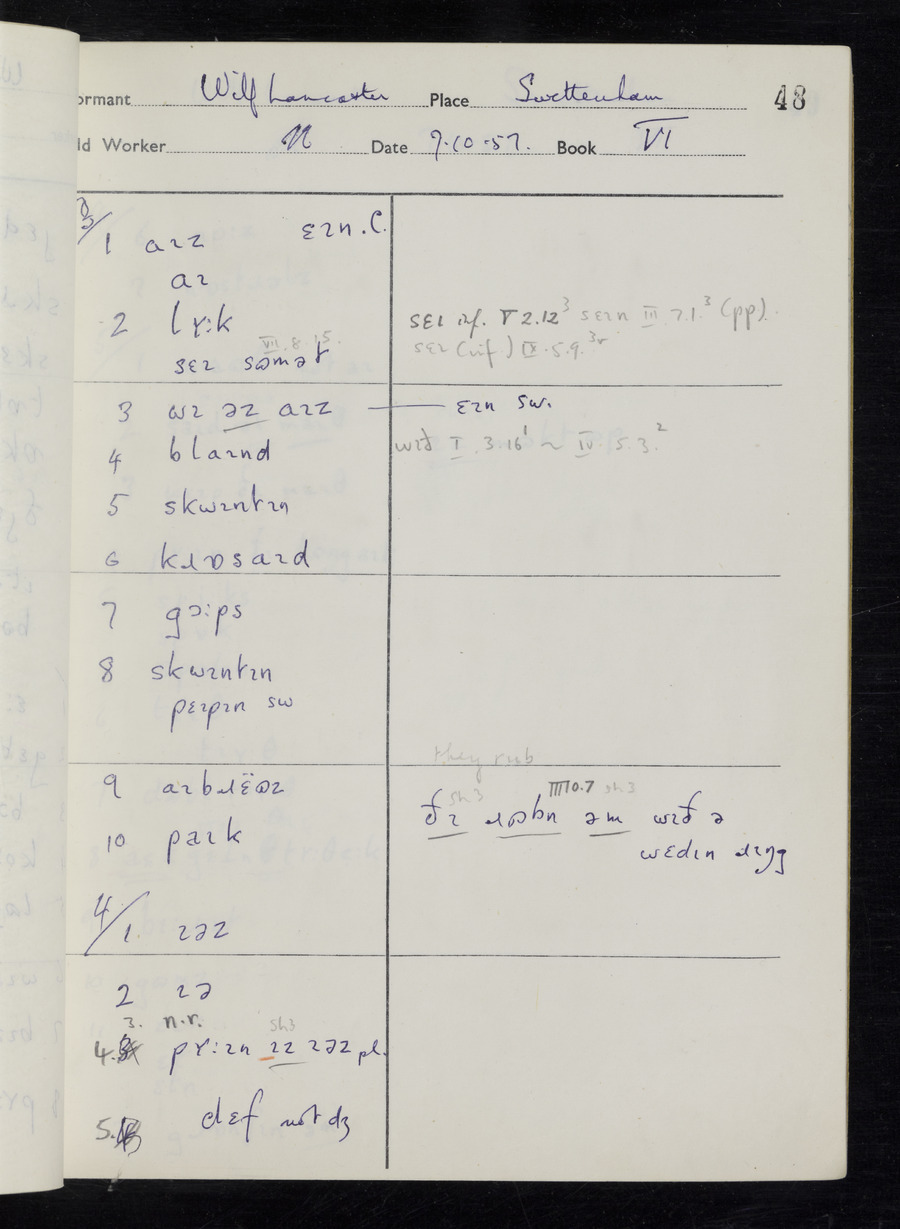 ormant Wilf Lancaster Place Swettenham 48
ld Worker N Date 7.10.57. Book VI
3/1 aɪz ɛɪn .C.
aɪ
2 lɤ:k
VII.8.15.
sɛɪ sɷmət
sɛɪ inf. V 2.12³ sɛɪn III 7.1.³ (pp).
sɛɪ (inf) IX.5.9.³
3 wɪ əz aɪz — ɛɪn sw.
wɪð I 3.16¹ ~ IV.5.3²
4 blaɪnd
5 skwɪntɪn
6 kɹɒsaɪd
7 gɔ:ps
8 skwɪntɪn
pɛɪpɪn sw
they rub
9 aɪbɹɛ̈ɷz
sh3 III 10.7 sh3
ðɪ ɹɷbn əm wɪð ə
wɛdɪn ɹɪŋg
10 paɪk
4/1. ɪəz
2 ɪə
3. n.r.
sh3
4. pɤ:ɪn ɪz ɪəz pl.
5. dɛf not dʒ